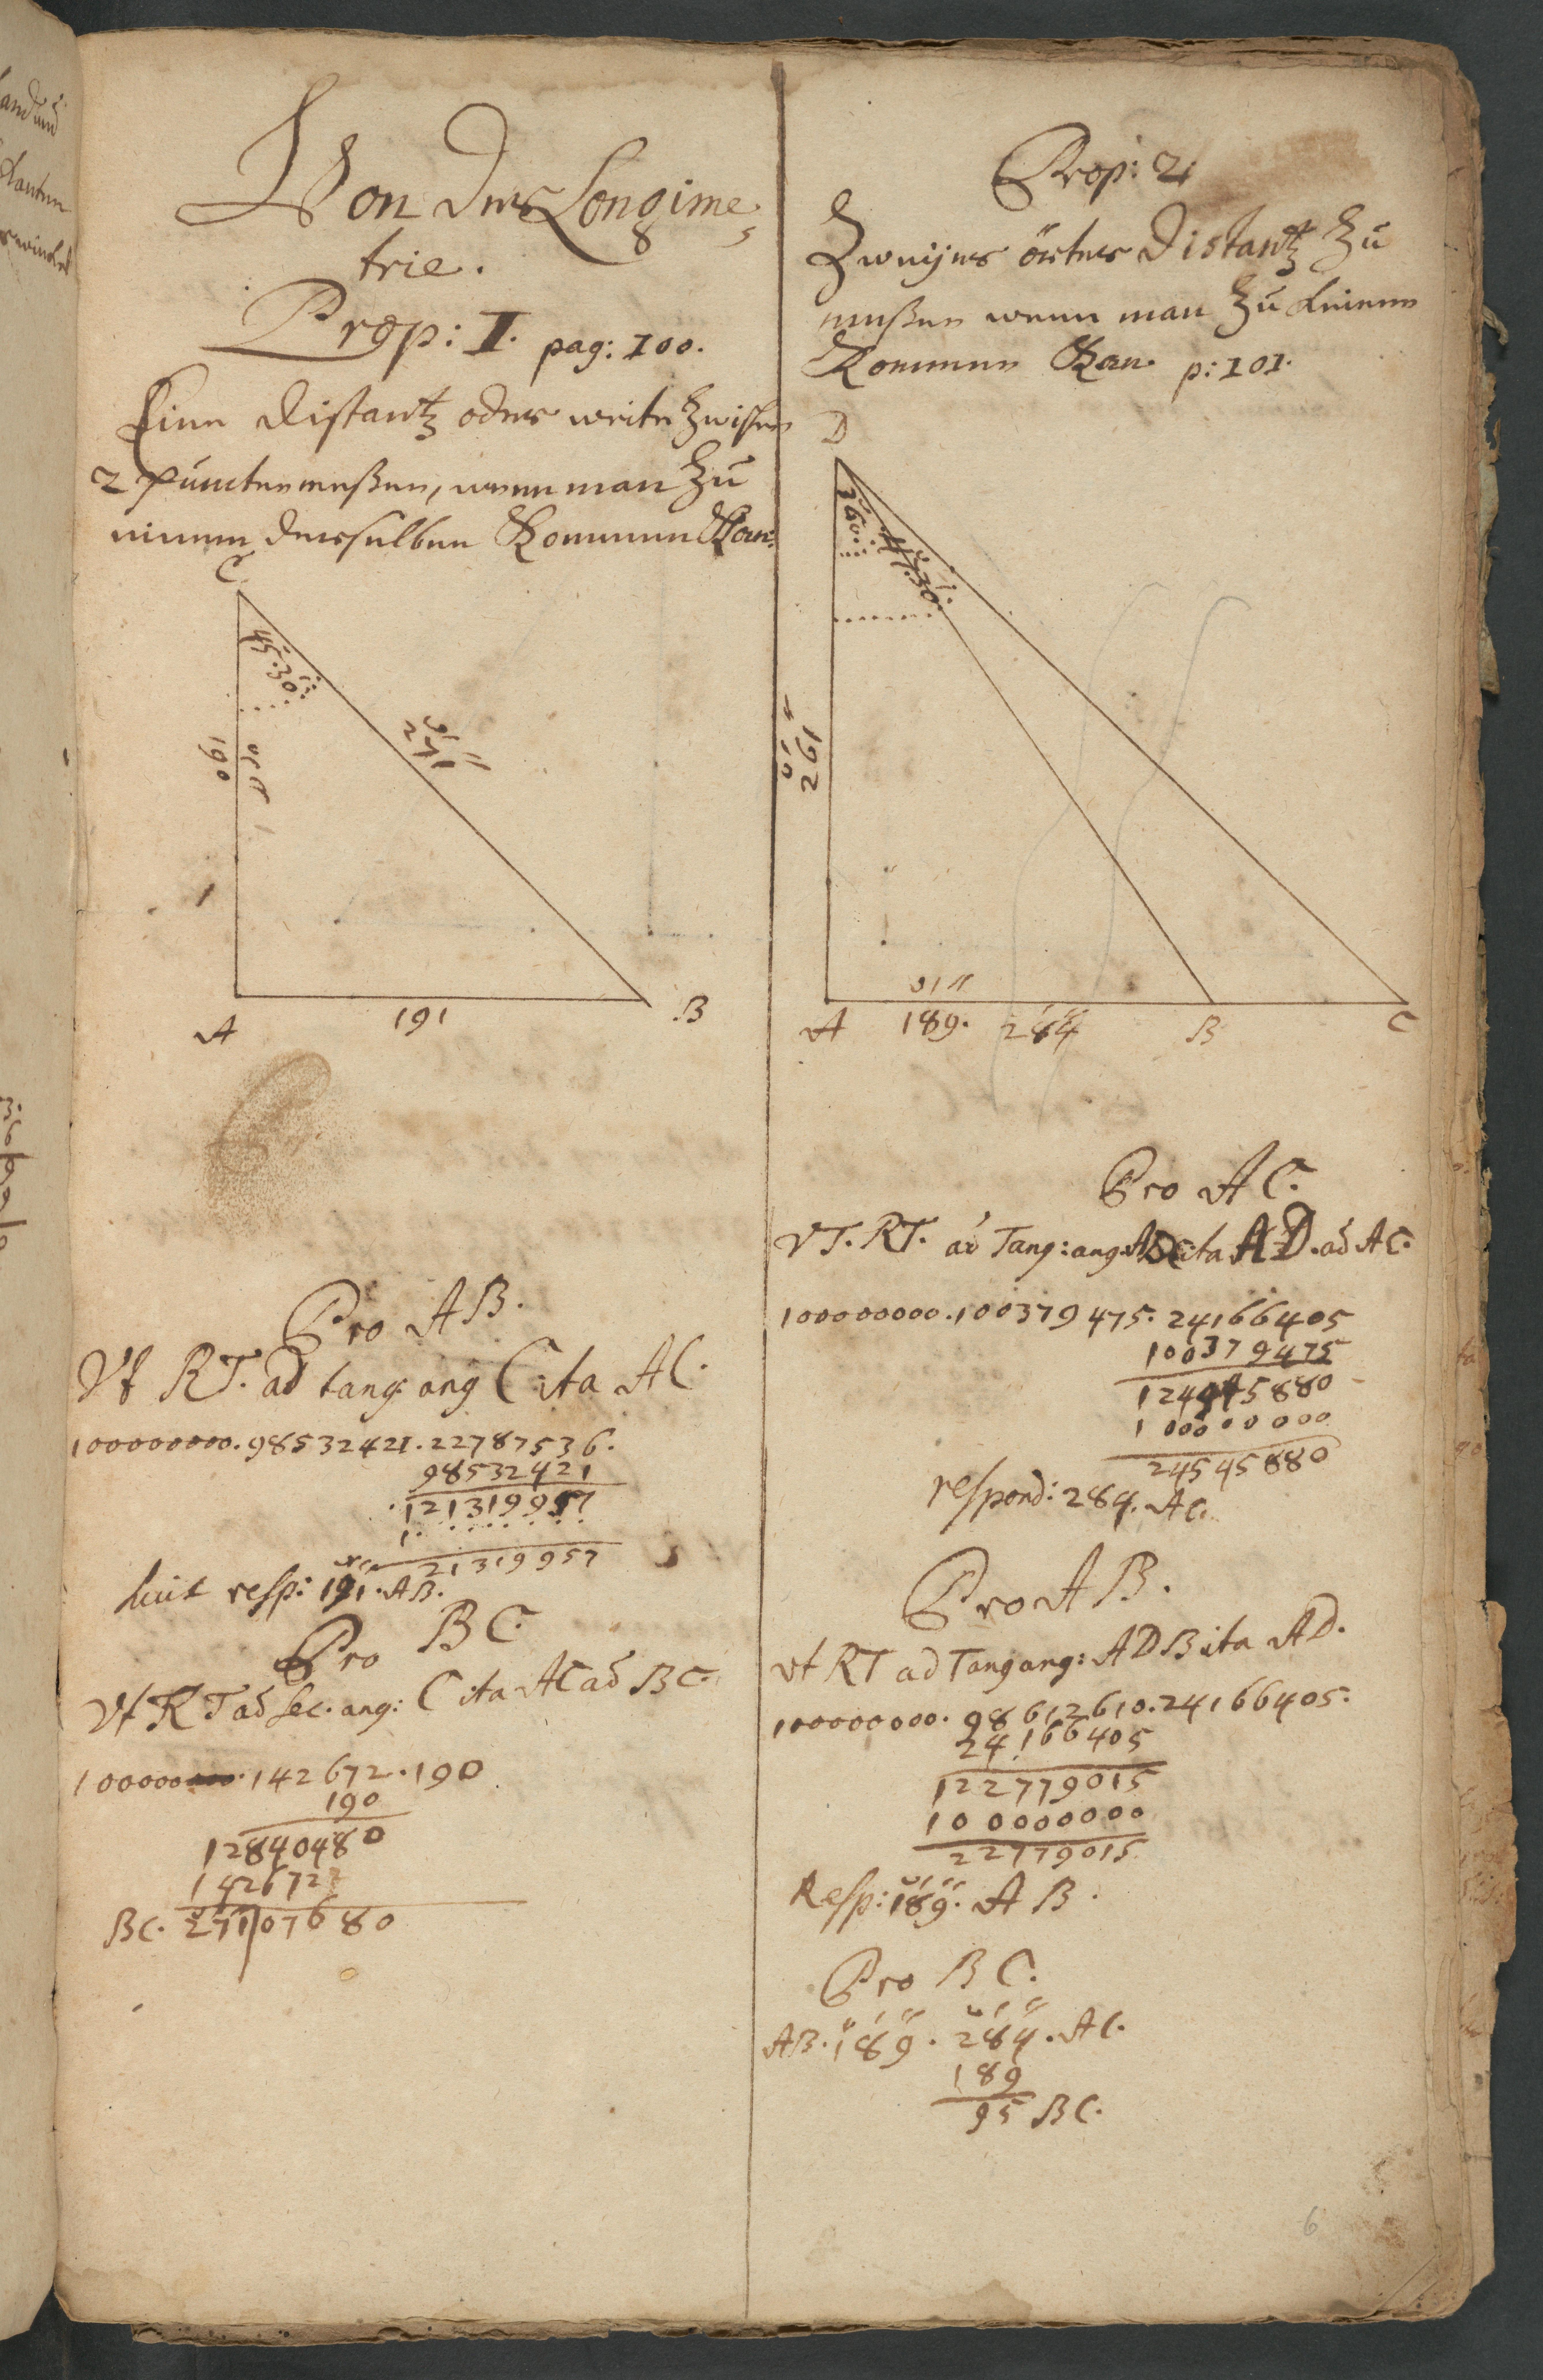 Von der Longime-
trie.
Prop: I. pag: 100.
Eine Distantz oder weite zwischen
2 puncten meßen, wenn man zu
einem derselben Kommen Kan.
C
45.30
190
271
A
191
B
Pro AB.
Vt RT. ad tang ang C ita AC.
100000000. 98532421. 22787536.
98532421
121319957
1
21319957
resp: 191. AB.
Pro BC
Vt RT ad sec. ang: C ita AC ad BC.
100000 142672. 190
190
12840480
142672
BC. 271|07680
Prop: 2
Zweyer örter Distantz zu
meßen wenn man zu keinem
Kommen Kan. p: 101.
D
36
47.30
262
A
189.
284
B
C
Pro AC.
VT. RT. ad Tang: ang ADC ita AD. ad AC.
100000000. 100379475. 24166405
100379475
124545880
100000000
24545880
respond: 284. AC.
Pro AB.
Vt RT ad Tang ang: ADB ita AD.
100000000. 98612610. 24166405.
24166405
122779015
100000000
22779015
Resp: 189. AB.
Pro BC.
AB. 189. 284. AC.
189
95 BC.
6